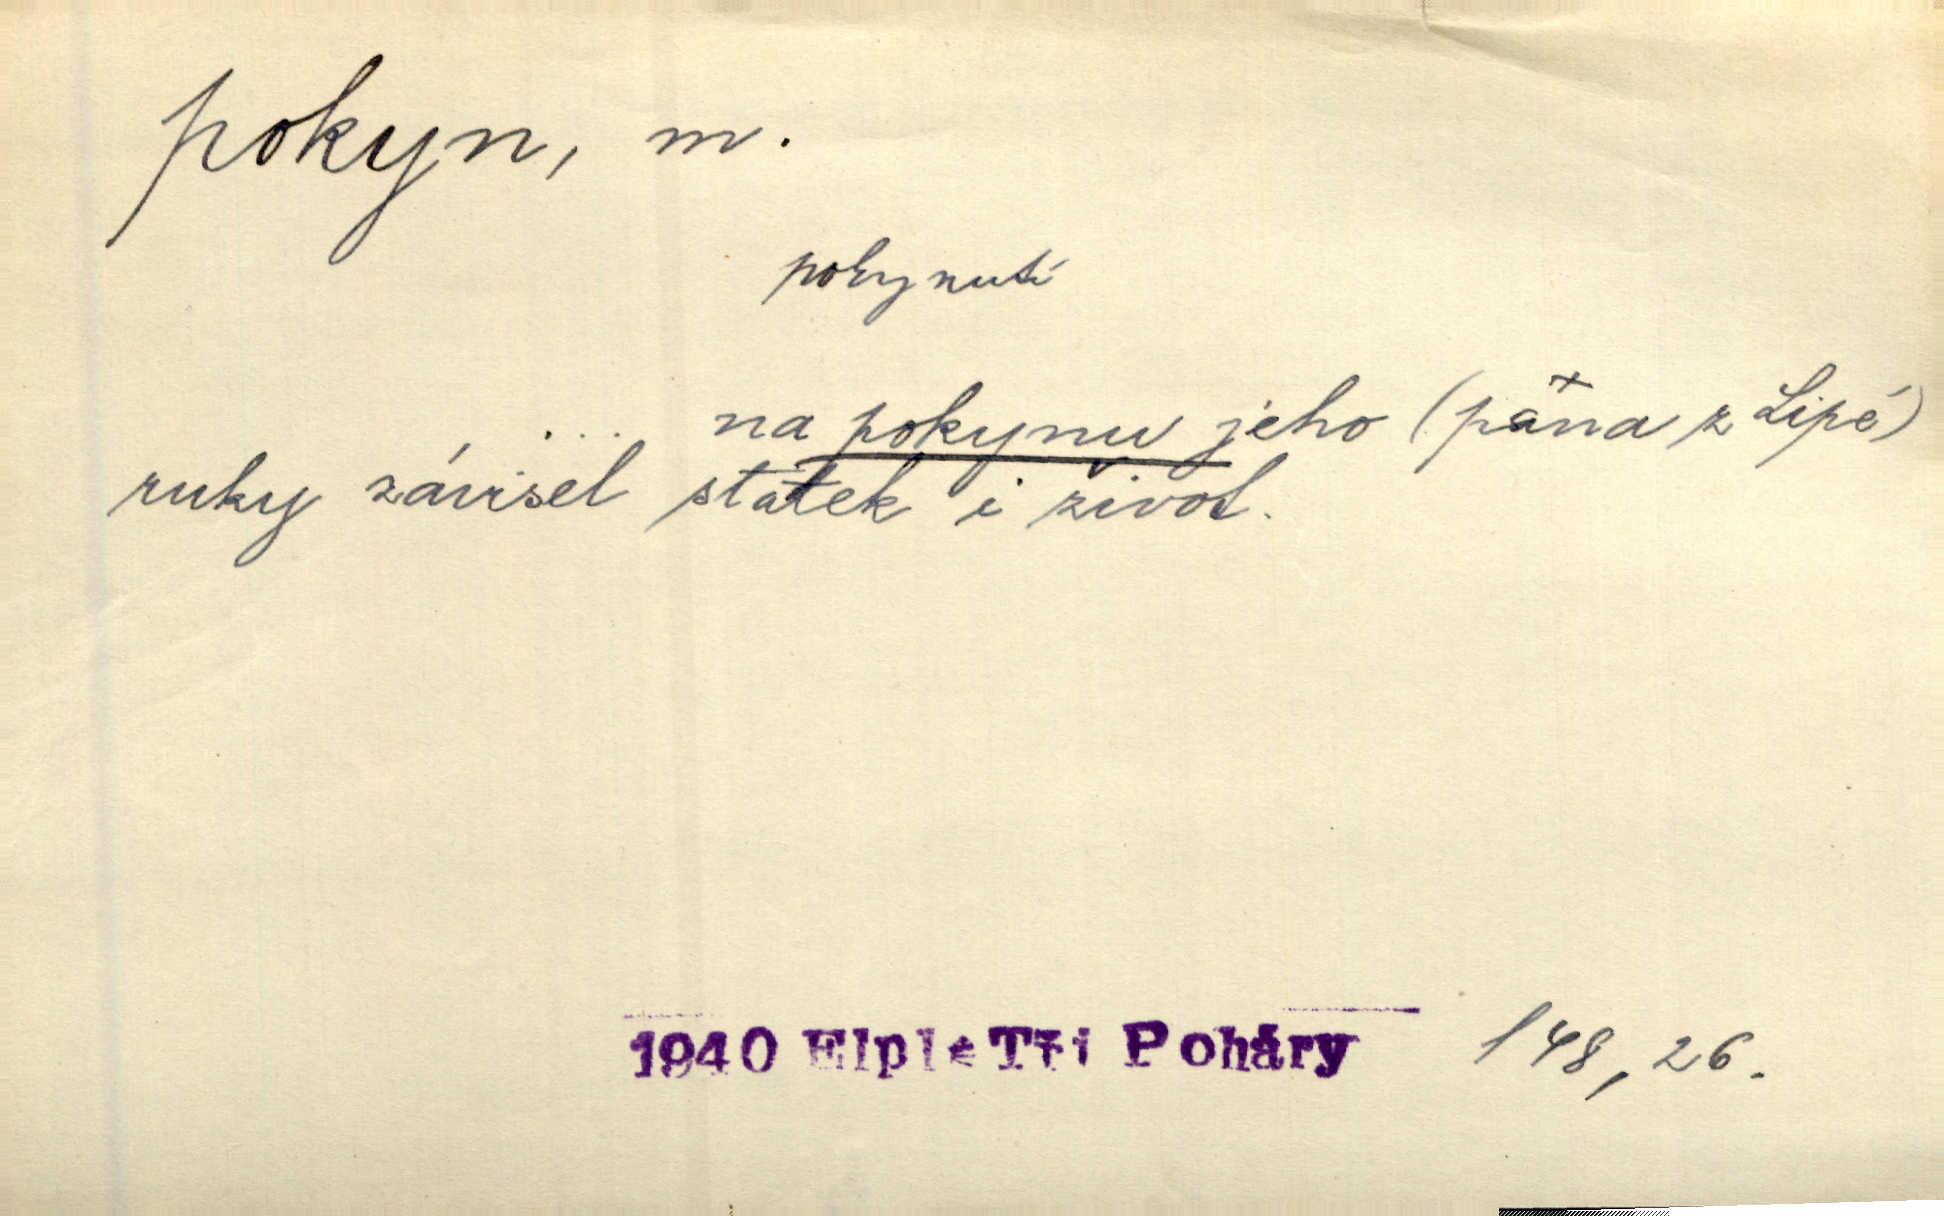 pokyn, m.
pokynutí
... na pokynu jeho (pána z Lipé)
ruky závisel statek i život.
1940 Elpl: Tři Poháry 148, 26.